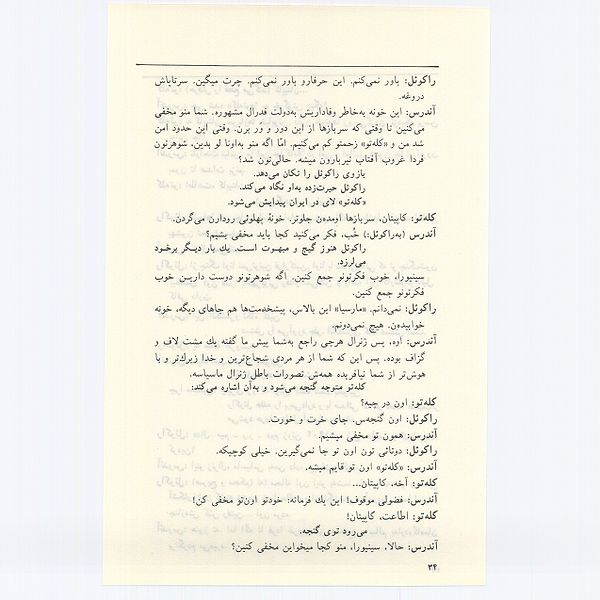 راکوئل: باور نمی‌کنم. این حرفارو باور نمی‌کنم. چرت میگین. سرتاپاش
دروغه.
آندرس: این خونه به‌خاطر وفاداریش به‌دولت فدرال مشهوره. شما منو مخفی
می‌کنین تا وقتی که سربازها از این دور و ور برن. وقتی این حدود امن
شد من و «کله‌تو» زحمتو کم می‌کنیم. امّا اگه منو به‌اونا لو بدین، شوهرتون
فردا غروب آفتاب تیربارون میشه. حالی‌تون شد؟
بازوی راکوئل را تکان می‌دهد.
راکوئل حیرت‌زده به‌او نگاه می‌کند.
«کله‌تو» لای در ایوان پیدایش می‌شود.
کله‌تو: کاپیتان، سربازها اومده‌ن جلوتر. خونهٔ پهلوئی رودارن می‌گردن.
آندرس (به‌راکوئل:) خُب، فکر می‌کنید کجا باید مخفی بشیم؟
راکوئل هنوز گیج و مبهوت است. یك بار دیگر برخود
می‌لرزد.
سینیورا، خوب فکرتونو جمع کنین. اگه شوهرتونو دوست دارین خوب
فکرتونو جمع کنین.
راکوئل: نمی‌دانم. «مارسیا» این بالاس، پیشخدمت‌ها هم جاهای دیگه، خونه
خوابیده‌ن. هیچ نمی‌دونم.
آندرس: اوه، پس ژنرال هرچی راجع به‌شما پیش ما گفته یك مشت لاف و
گزاف بوده. پس این که شما از هر مردی شجاع‌ترین و خدا زیرك‌تر و با
هوش‌تر از شما نیافریده همه‌ش تصورات باطل ژنرال ماسیاسه.
کله‌تو متوجه گنجه می‌شود و به‌آن اشاره می‌کند:
کله‌تو: اون در چیه؟
راکوئل: اون گنجه‌س. جای خرت و خورت.
آندرس: همون تو مخفی میشیم.
راکوئل: دوتائی تون اون تو جا نمی‌گیرین. خیلی کوچیکه.
آندرس: «کله‌تو» اون تو قایم میشه.
کله‌تو: آخه، کاپیتان...
آندرس: فضولی موقوف! این یك فرمانه: خودتو اون‌تو مخفی کن!
کله‌تو: اطاعت، کاپیتان!
می‌رود توی گنجه.
آندرس: حالا، سینیورا، منو کجا میخواین مخفی کنین؟
۳۴